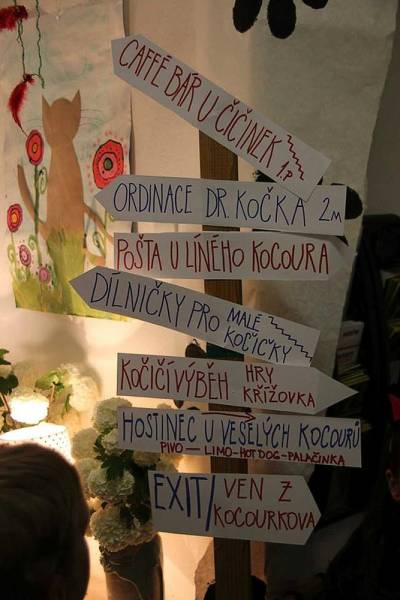 CAFFÉ BÁR U ČIČINEK 1P
ORDINACE DR. KOČKA 2M
POŠTA U LÍNÉHO KOCOURA
DÍLNIČKY PRO MALÉ
KOČIČKY
KOČIČÍ VÝBĚH HRY
KŘÍŽOVKA
HOSTINEC U VESELÝCH KOCOURŮ
PIVO - LIMO - HOT DOG - PALAČINKA
EXIT/ VEN Z
KOCOURKOVA